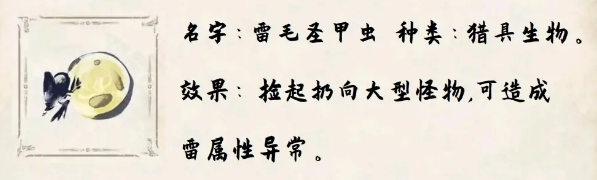 名字：雷毛圣甲虫  种类：猎具生物。
效果：捡起扔向大型怪物,可造成
雷属性异常。